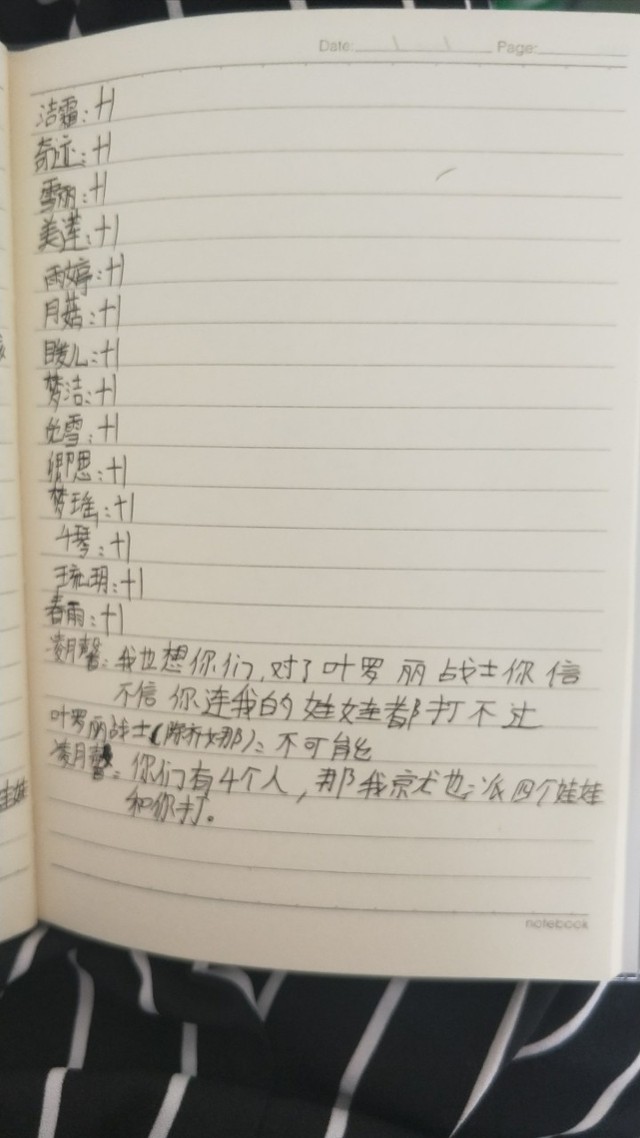 Date: Page:
洁霜:+1
奇迹:+1
雪丽:+1
美莲:+1
雨婷:+1
月菇:+1
儿:+1
梦洁:+1
雪:+1
卿思:+1
梦瑶:+1
琴:+1
王流玥:+1
春雨:+1
凌月馨:我也想你们,对了叶罗丽战士你信
不信你连我的娃娃都打不过
叶罗丽战士(除齐娜):不可能
凌月馨:你们有4个人,那我就也派四个娃娃
和你打。
娃娃
notebook